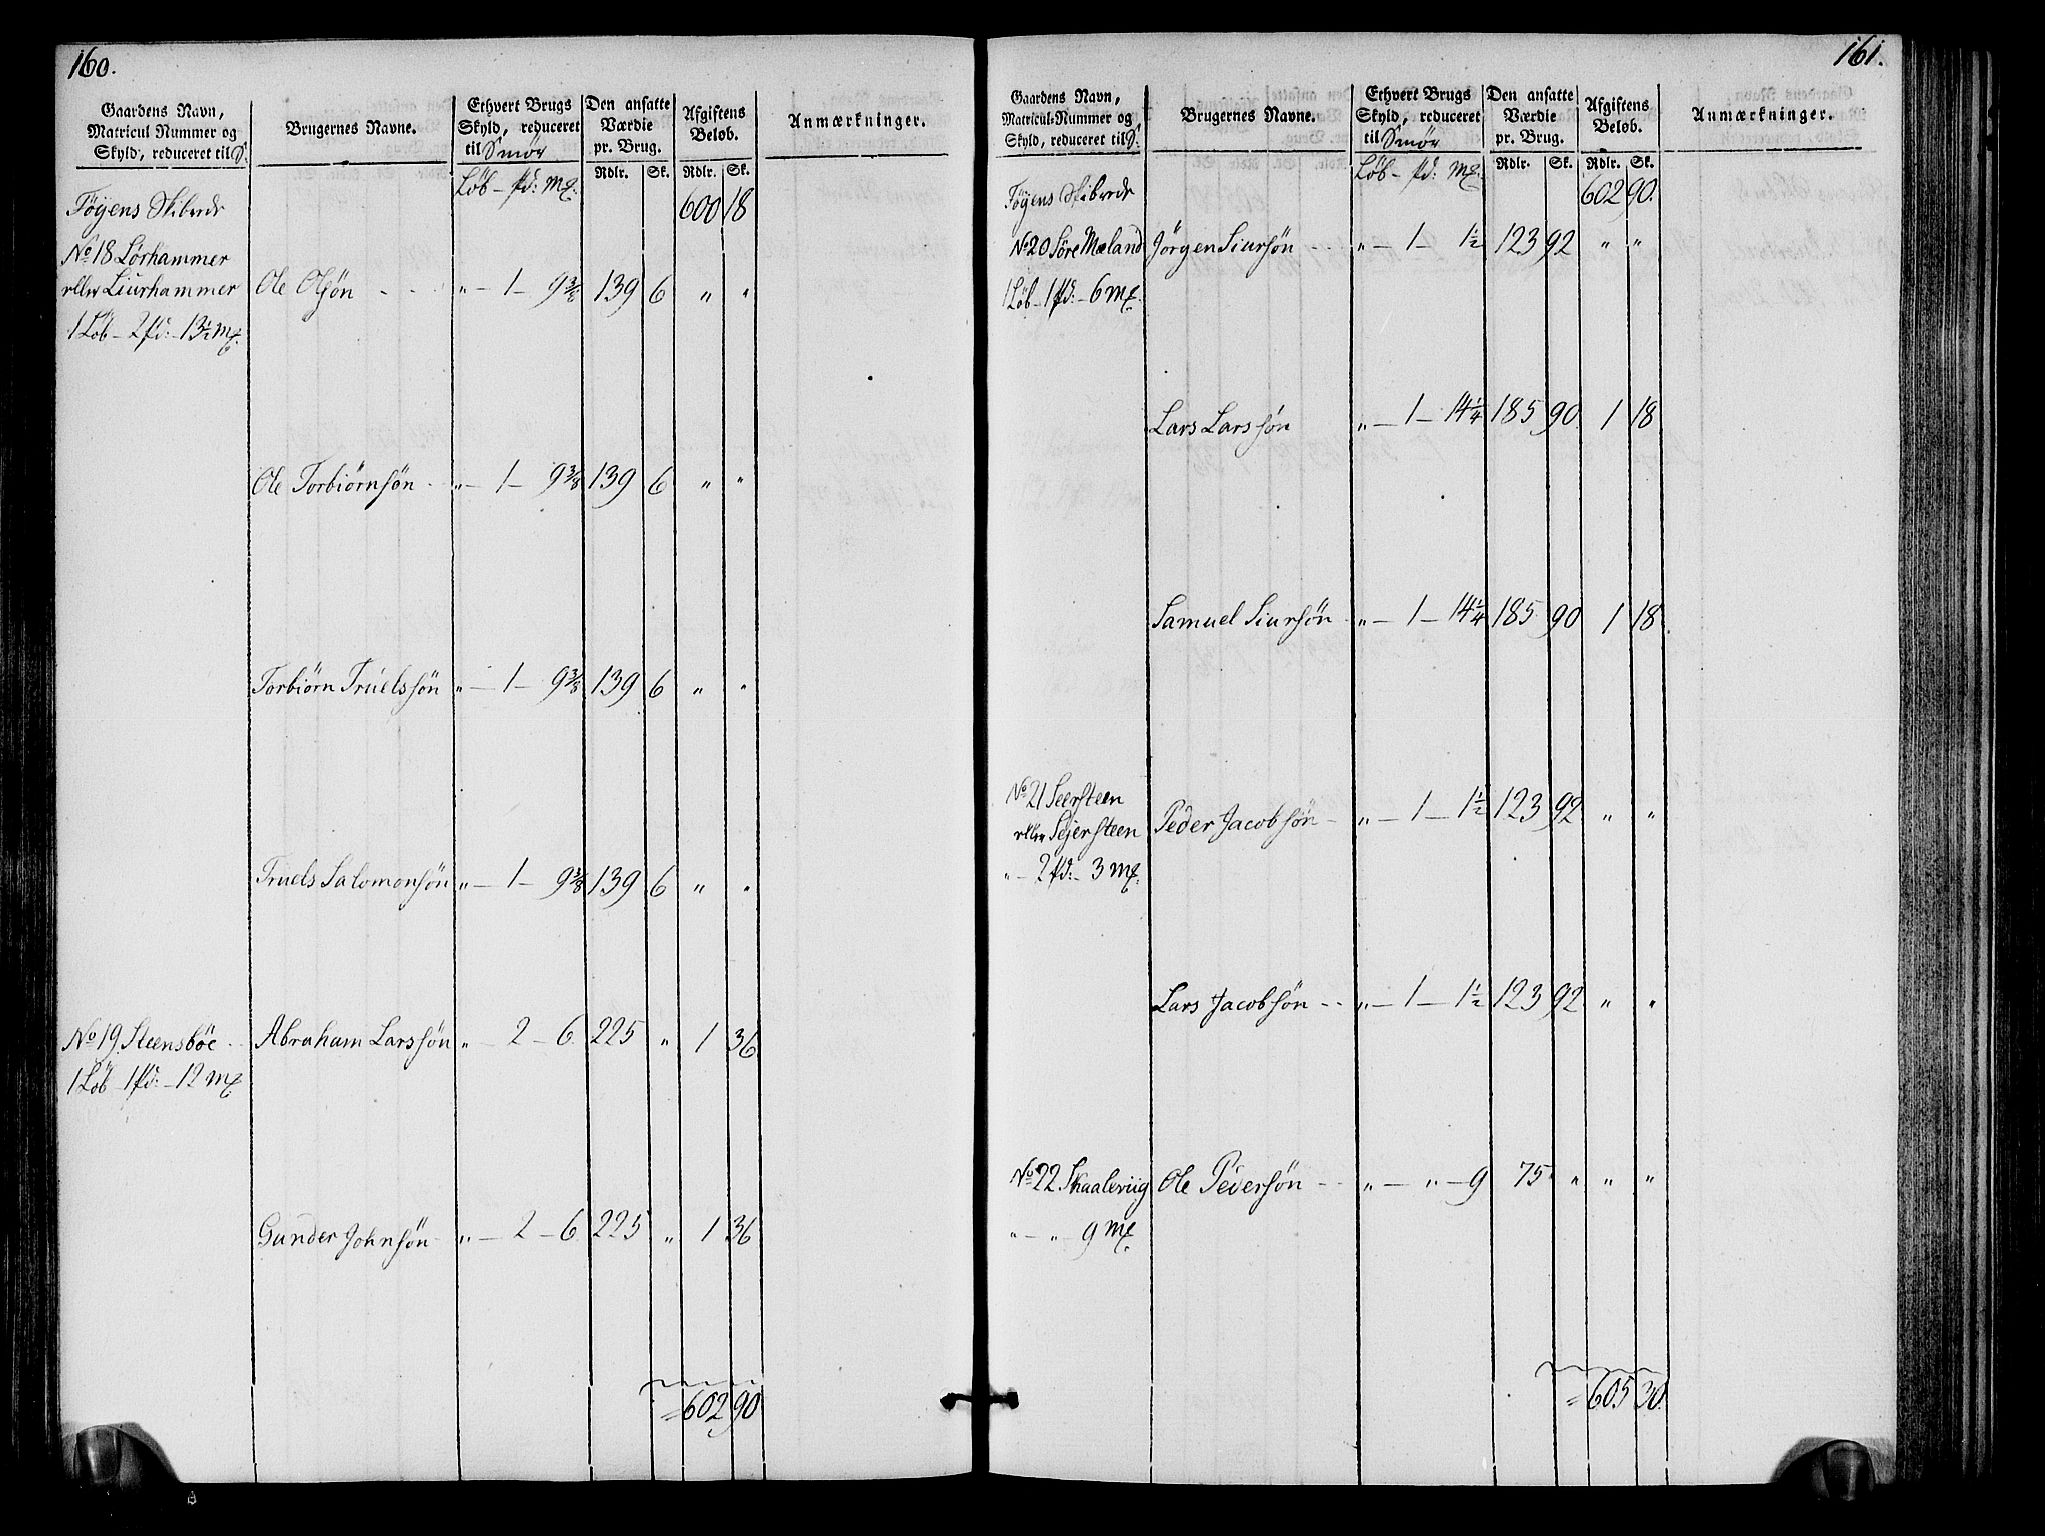 160.
Gaardens Navn, Matricul Nummer og Skyld, reduceret til S:
Brugernes Navne.
Ethvert Brugs Skyld, reduceret til Smör
Den ansatte Værdie pr. Brug.
Afgiftens Beløb.
Anmærkninger.
Rdlr. Sk. Rdlr. Sk.
Löb - pd: mk.
Föyens Skibrede 600 18
No 18 Lörhammer
eller Liurhammer Ole Olsön - - - " - 1 - 9 3/8 139 6 " "
1 Löb - 2 pd: - 13 1/2 mk.
Ole Torbiörnsön - " - 1 - 9 3/8 139 6 " "
Torbiörn Truelssön " - 1 - 9 3/8 139 6 " "
Truels Salomonsön " - 1 - 9 3/8 139 6 " "
No 19 Steensböe Abraham Larssön " - 2 - 6. 225 " 1 36
1 Löb - 1 pd: - 12 mk
Gunder Johnsön " - 2 - 6 225 " 1 36
= 602 90
161.
Gaardens Navn, Matricul-Nummer og Skyld, reduceret til S:
Brugernes Navne.
Ethvert Brugs Skyld, reduceret til Smör
Den ansatte Værdie pr. Brug.
Afgiftens Beløb.
Anmærkninger.
Rdlr. Sk. Rdlr. Sk.
Löb - pd: mk.
Föyens Skibrede 602 90.
No 20 Söre Mæland Jörgen Siursön - - - " - 1 - 1 1/2 123 92 " "
1 Löb - 1 pd: - 6 mk.
Lars Larssön " - 1 - 14 1/4 185 90 1 18
Samuel Siursön - " - 1 - 14 1/4 185 90 1 18
No 21 Seersteen
eller Sejersteen Peder Jacobsön - " - 1 - 1 1/2 123 92 " "
" - 2 pd: - 3 mk.
Lars Jacobsön - - " - 1 - 1 1/2 123 92 " "
No 22 Skaaleviig Ole Pedersön - - " - " - 9 75 " " "
" - " - 9 mk.
= 605 30.